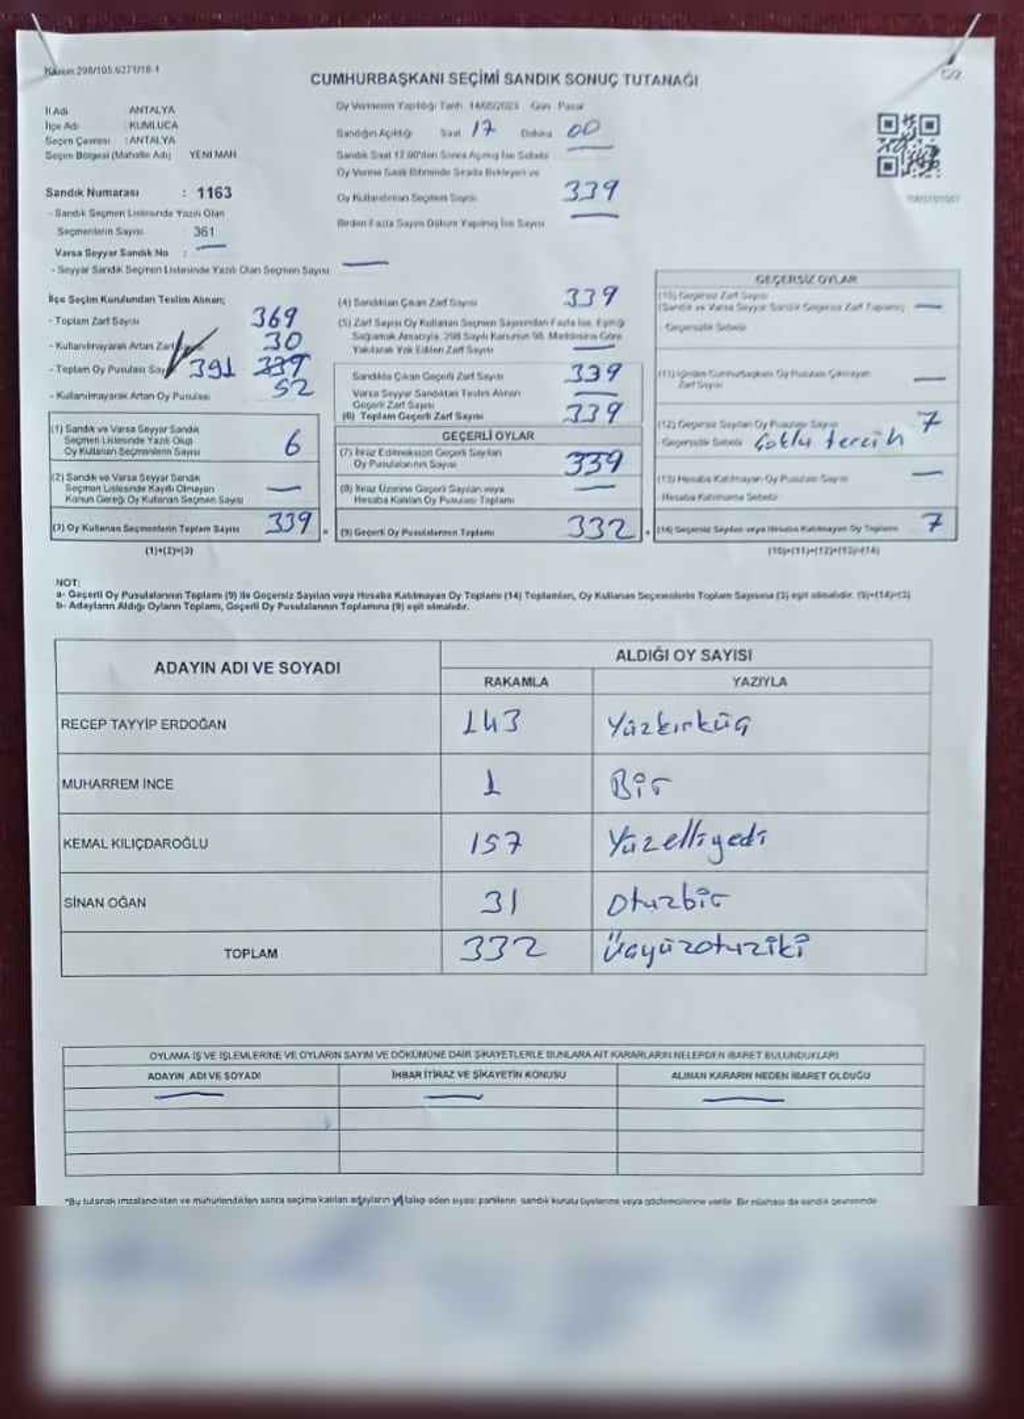 Kanun 298/105.6271/18-1
C/2
CUMHURBAŞKANI SEÇİMİ SANDIK SONUÇ TUTANAĞI
İl Adı ANTALYA
İlçe Adı : KUMLUCA
Seçim Çevresi : ANTALYA
Seçim Bölgesi (Mahalle Adı) YENİ MAH
Sandık Numarası : 1163
- Sandık Seçmen Listesinde Yazılı Olan
Seçmenlerin Sayısı 361
Varsa Seyyar Sandık No : —
- Seyyar Sandık Seçmen Listesinde Yazılı Olan Seçmen Sayısı —
Oy Vermenin Yapıldığı Tarih 14/05/2023 Gün Pazar
Sandığın Açıldığı Saat 17 Dakika 00
Sandık Saat 17.00'den Sonra Açılmış İse Sebebi
Oy Verme Saati Bitiminde Sırada Bekleyen ve
Oy Kullandırılan Seçmen Sayısı 339
Birden Fazla Sayım Döküm Yapılmış İse Sayısı
İlçe Seçim Kurulundan Teslim Alınan;
- Toplam Zarf Sayısı 369
- Kullanılmayarak Artan Zarf 30
- Toplam Oy Pusulası Sayısı 391 339
- Kullanılmayarak Artan Oy Pusulası 52
(1) Sandık ve Varsa Seyyar Sandık
Seçmen Listesinde Yazılı Olup
Oy Kullanan Seçmenlerin Sayısı 6
(2) Sandık ve Varsa Seyyar Sandık
Seçmen Listesinde Kaydı Olmayan
Kanun Gereği Oy Kullanan Seçmen Sayısı —
(3) Oy Kullanan Seçmenlerin Toplam Sayısı 339 =
(1)+(2)=(3)
(4) Sandıktan Çıkan Zarf Sayısı 339
(5) Zarf Sayısı Oy Kullanan Seçmen Sayısından Fazla İse, Eşitliği
Sağlamak Amacıyla, 298 Sayılı Kanunun 98. Maddesine Göre
Yakılarak Yok Edilen Zarf Sayısı —
Sandıkta Çıkan Geçerli Zarf Sayısı 339
Varsa Seyyar Sandıktan Teslim Alınan
Geçerli Zarf Sayısı —
(6) Toplam Geçerli Zarf Sayısı 339
GEÇERLİ OYLAR
(7) İtiraz Edilmeksizin Geçerli Sayılan
Oy Pusulalarının Sayısı 339
(8) İtiraz Üzerine Geçerli Sayılan veya
Hesaba Katılan Oy Pusulası Toplamı —
(9) Geçerli Oy Pusulalarının Toplamı 332 +
GEÇERSİZ OYLAR
(10) Geçersiz Zarf Sayısı
(Sandık ve Varsa Seyyar Sandık Geçersiz Zarf Toplamı) —
- Geçersizlik Sebebi
Zarf Sayısı —
(12) Geçersiz Sayılan Oy Pusulası Sayısı 7
- Geçersizlik Sebebi Çoklu tercih
(13) Hesaba Katılmayan Oy Pusulası Sayısı —
- Hesaba Katılmama Sebebi
(14) Geçersiz Sayılan veya Hesaba Katılmayan Oy Toplamı 7
(10)+(11)+(12)+(13)=(14)
NOT:
a- Geçerli Oy Pusulalarının Toplamı (9) ile Geçersiz Sayılan veya Hesaba Katılmayan Oy Toplamı (14) Toplamları, Oy Kullanan Seçmenlerin Toplam Sayısına (3) eşit olmalıdır. (9)+(14)=(3)
b- Adayların Aldığı Oyların Toplamı, Geçerli Oy Pusulalarının Toplamına (9) eşit olmalıdır.
ADAYIN ADI VE SOYADI ALDIĞI OY SAYISI
RAKAMLA YAZIYLA
RECEP TAYYİP ERDOĞAN 143 Yüzkırküç
MUHARREM İNCE 1 Bir
KEMAL KILIÇDAROĞLU 157 Yüzelliyedi
SİNAN OĞAN 31 Otuzbir
TOPLAM 332 Üçyüzotuziki
OYLAMA İŞ VE İŞLEMLERİNE VE OYLARIN SAYIM VE DÖKÜMÜNE DAİR ŞİKAYETLERLE BUNLARA AİT KARARLARIN NELERDEN İBARET BULUNDUKLARI
ADAYIN ADI VE SOYADI İHBAR İTİRAZ VE ŞİKAYETİN KONUSU ALINAN KARARIN NEDEN İBARET OLDUĞU
— — —
*Bu tutanak imzalandıktan ve mühürlendikten sonra seçime katılan adayların ve talep eden siyasi partilerin sandık kurulu üyelerine veya gözlemcilerine verilir. Bir nüshası da sandık çevresinde